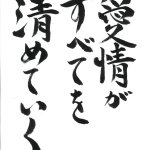 愛情が
すべてを
清めていく